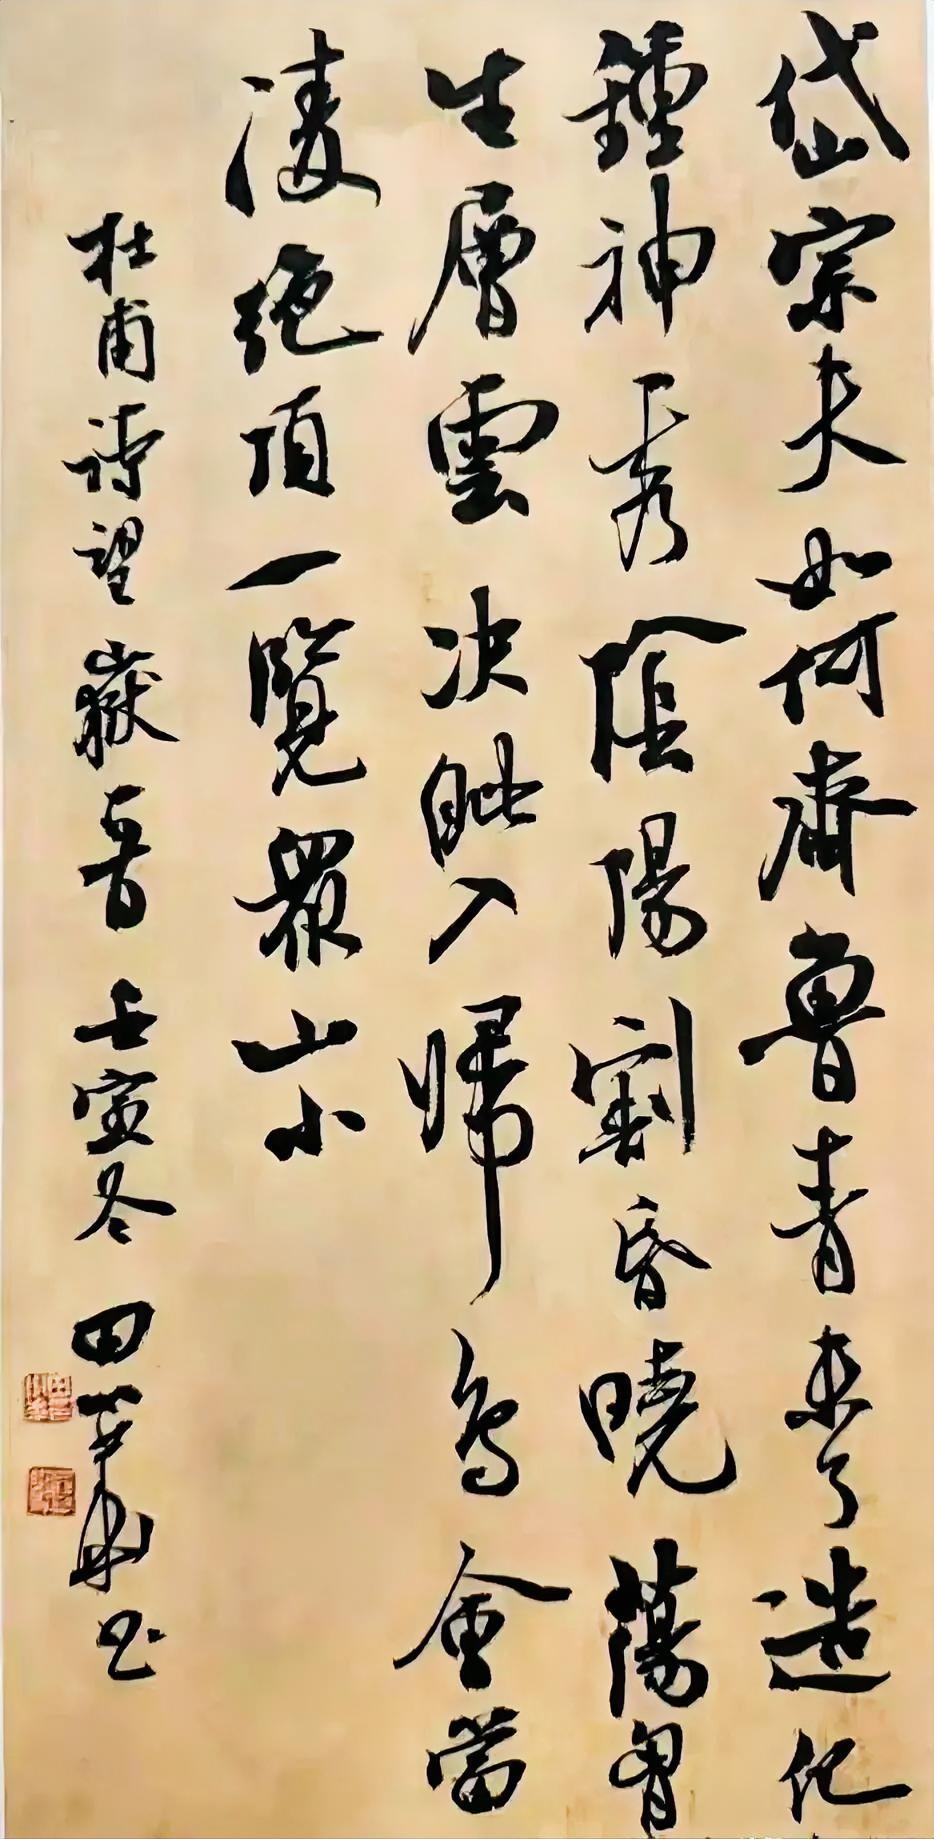 岱宗夫如何齊魯青未了造化
鍾神秀陰陽割昏曉蕩胷
生層雲決眦入歸鳥會當
凌絶頂一覽衆山小
杜甫詩望嶽一首 壬寅冬 田